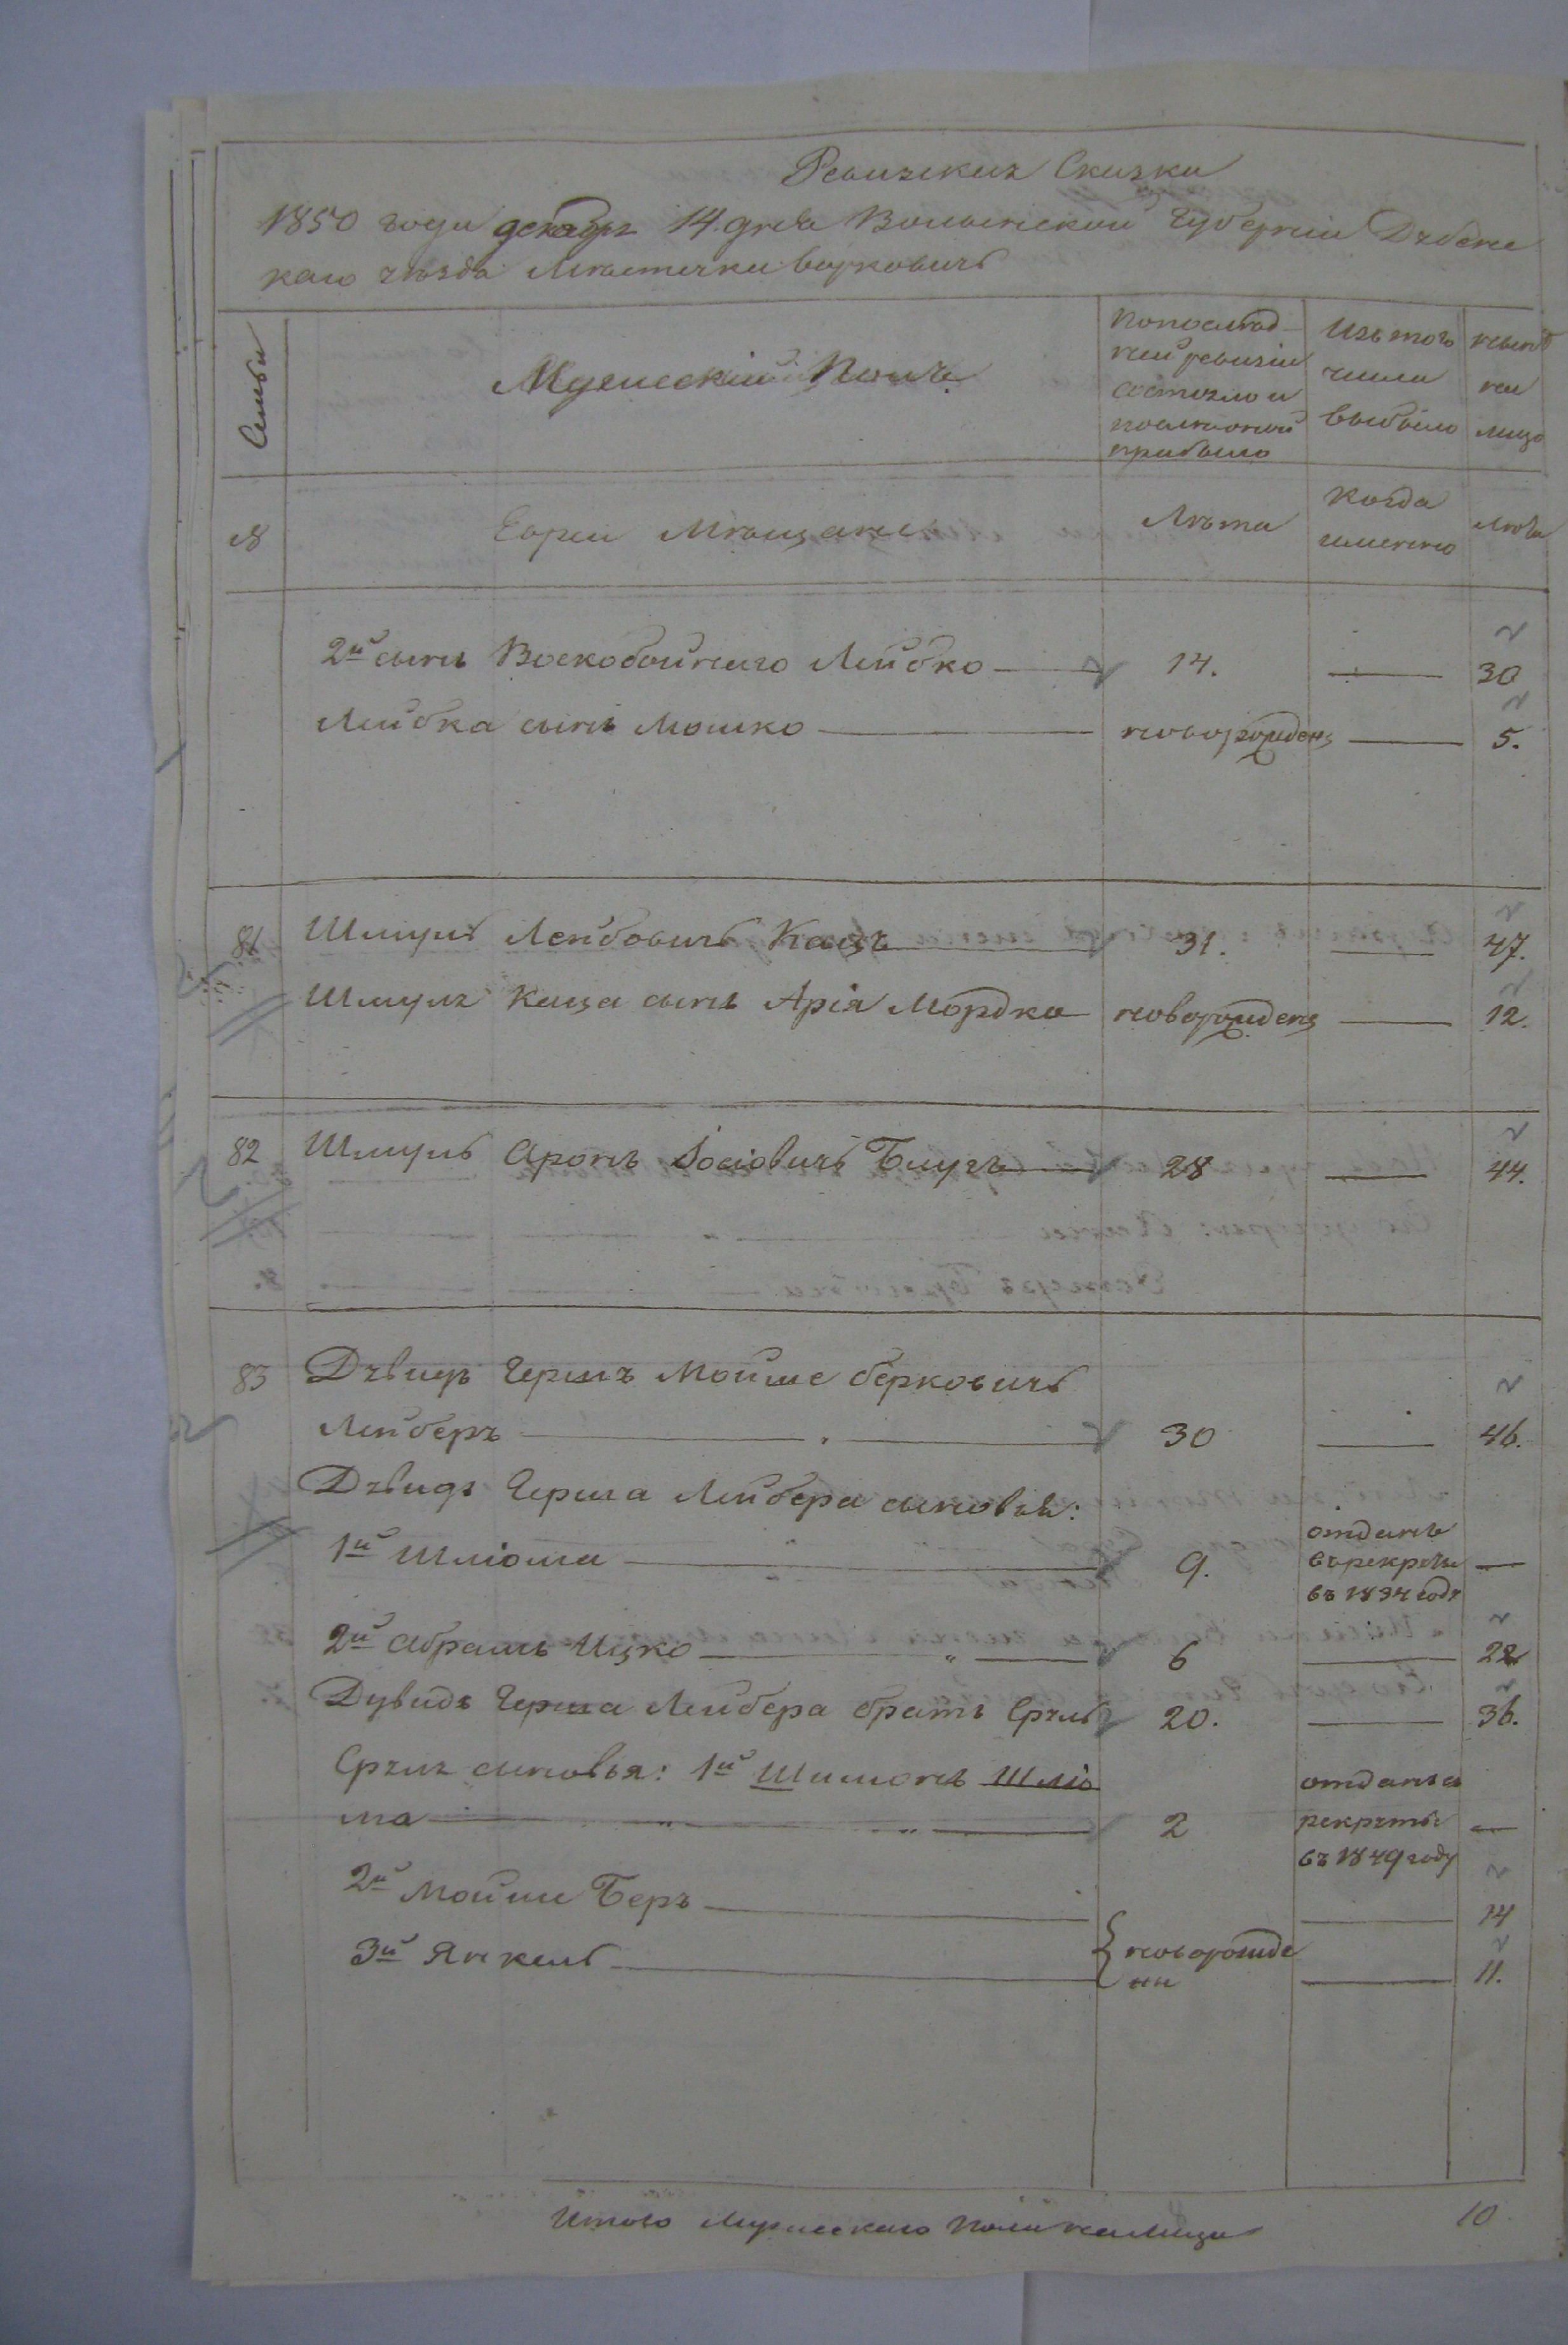 Ревизская Сказка
1850 года декабря 14. дня Волынской Губернии Дубенс
каго уезда Местечка Берковичъ
Семьи
Мужеский Полъ
По послед-
ней ревизии
состояло и
после оной
прибыло
Изъ того
числа
выбыло
ныне
на
лицо
№
Евреи Мещане
Лета
Когда
именно
Лета
2й сынъ Воскобойнаго Лейбко 14. 30
Лейбка сынъ Мошко новорожденъ 5.
81 Шмуль Лейбовичъ Кацъ 31. 47.
Шмуля Каца сынъ Арія Мордко новорожденъ 12.
82 Шмуль Аронъ Іосіовичъ 28 44.
83 Дувидъ Гершъ Мойше Берковичъ
Лейберъ 30 46.
Дувида Герша Лейбера сыновья:
1й Шліома 9. отданъ
въ рекруты
въ 1834 году
2й Абрамъ Ицко 6 22
Дувида Герша Лейбера братъ Сруль 20. 36.
Сруля сыновья: 1й Шимонъ Шліо
ма 2 отданъ в
рекруты
въ 1849 году
2й Мойше Беръ 14
3й Янкель новорожде
ни 11.
Итого Мужескаго пола на лицо 10